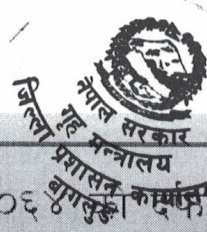 नेपाल सरकार
गृह मन्त्रालय
जिल्ला प्रशासन कार्यालय
बागलुङ
०६४